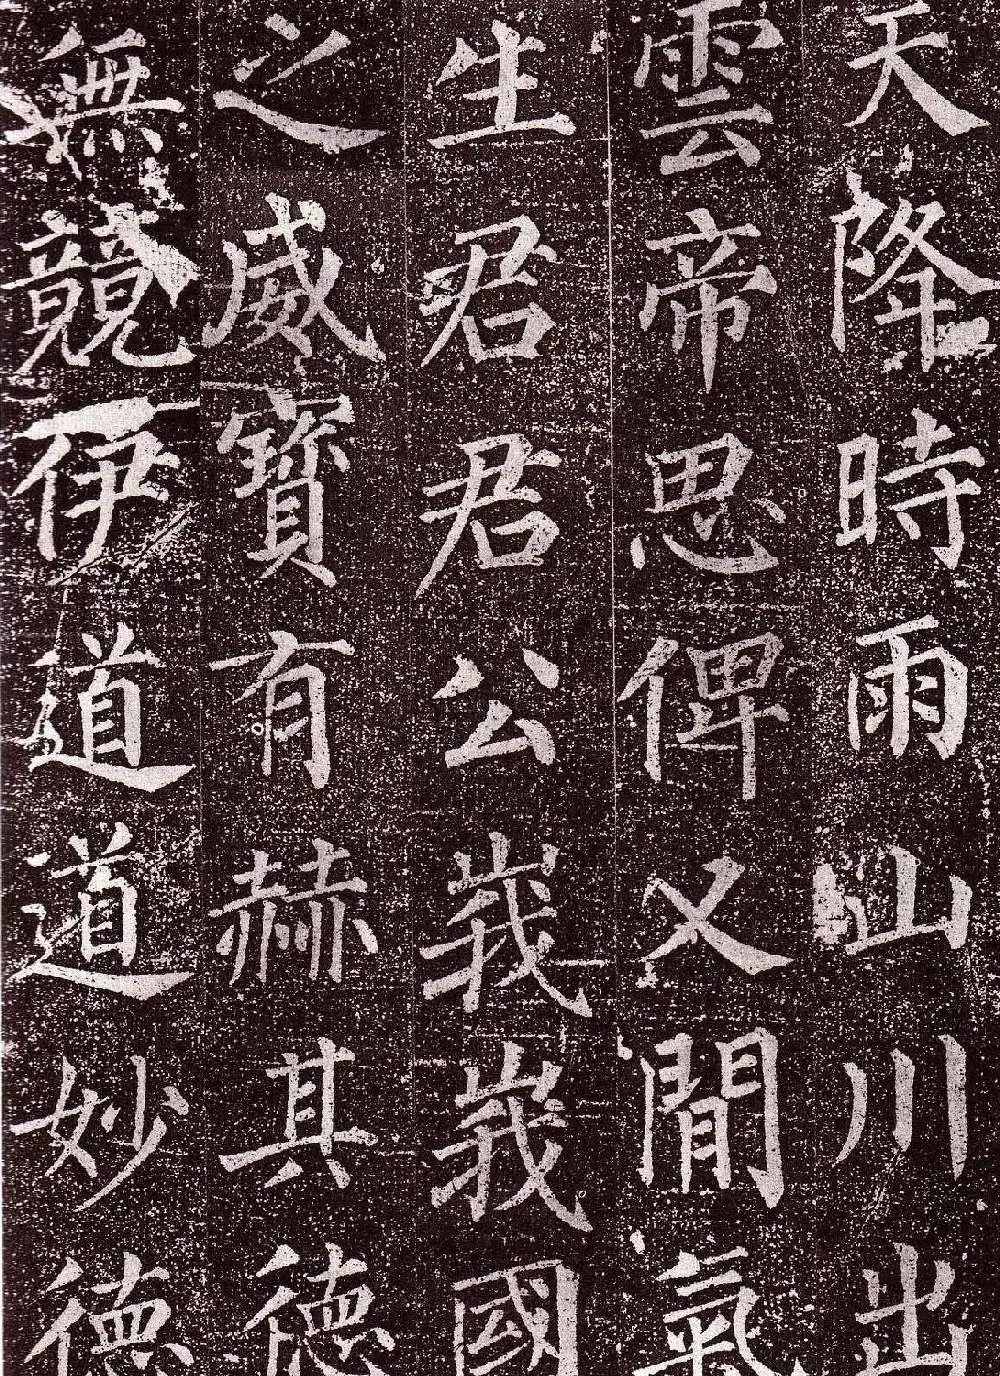 天降時雨山川出
雲帝思俾乂閒氣
生君君公峩峩國
之威寶有赫其德
無競伊道道妙德